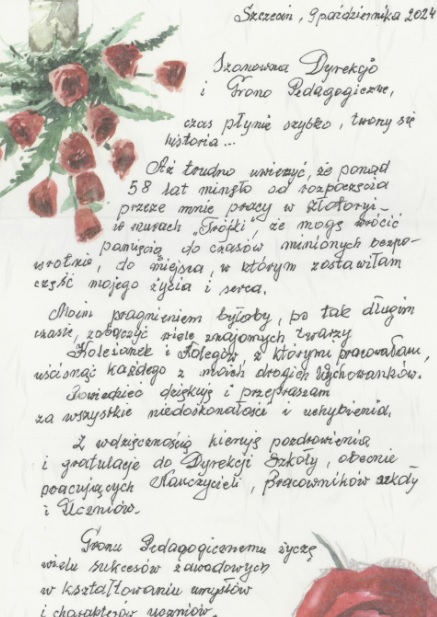 Szczecin, 9 października 2024
Szanowna Dyrekcjo
i Grono Pedagogiczne,
czas płynie szybko, tworzy się
historia...
Aż trudno uwierzyć, że ponad
58 lat minęło od rozpoczęcia
przeze mnie pracy w Złotoryi -
w murach „Trójki, że mogę wrócić
pamięcią do czasów minionych bezpo-
wrotnie, do miejsca, w którym zostawiłam
część mojego życia i serca.
Moim pragnieniem byłoby, po tak długim
czasie, zobaczyć wiele znajomych twarzy
Koleżanek i Kolegów, z którymi pracowałam,
uścisnąć każdego z moich drogich Wychowanków.
dziękuję i przepraszam
za wszystkie niedoskonałości i uchybienia.
Z wdzięcznością kieruję pozdrowienia
i gratulacje do Dyrekcji Szkoły, obecnie
pracujących Nauczycieli, Pracowników szkoły
i Uczniów.
Gronu Pedagogicznemu życzę
wielu sukcesów zawodowych
w kształtowaniu umysłów
i charakterów uczniów,